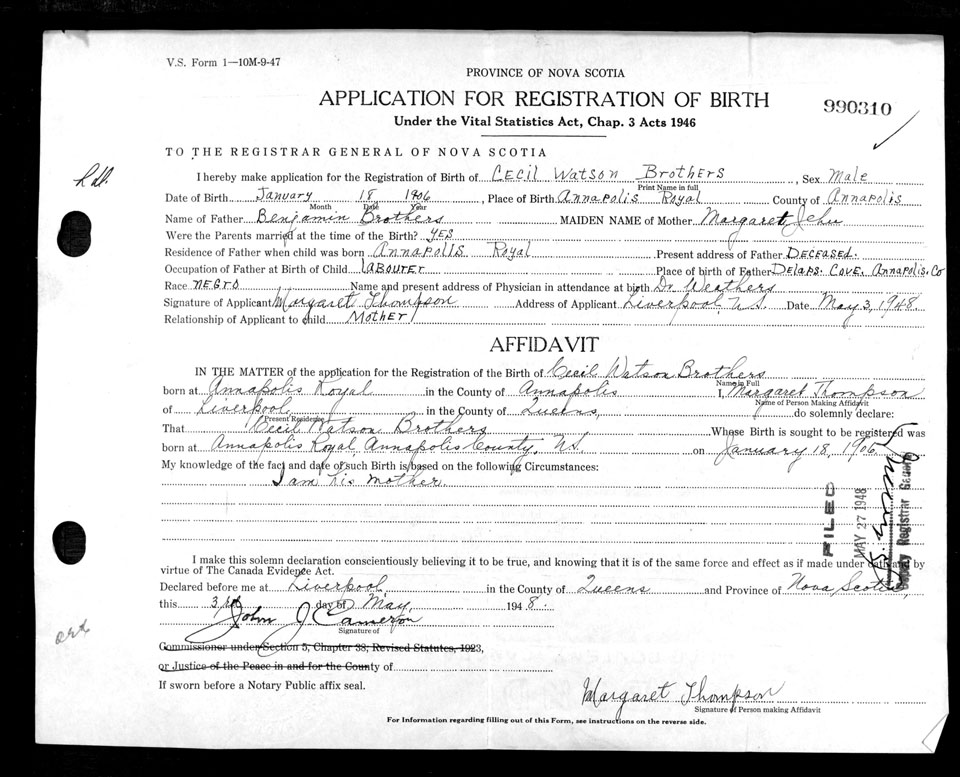 V.S. Form 1—10M-9-47
PROVINCE OF NOVA SCOTIA
APPLICATION FOR REGISTRATION OF BIRTH
990310
Under the Vital Statistics Act, Chap. 3 Acts 1946
TO THE REGISTRAR GENERAL OF NOVA SCOTIA
I hereby make application for the Registration of Birth of Cecil Watson Brothers, Sex Male
Print Name in full
Date of Birth January 18 1906, Place of Birth Annapolis Royal County of Annapolis
Month Date Year
Name of Father Benjamin Brothers MAIDEN NAME of Mother Margaret Jehu
Were the Parents married at the time of the Birth? YES
Residence of Father when child was born Annapolis Royal Present address of Father DECEASED.
Occupation of Father at Birth of Child Labourer Place of birth of Father Delaps. Cove. Annapolis. Co
Race Negro Name and present address of Physician in attendance at birth Dr Weathers
Signature of Applicant Margaret Thompson Address of Applicant Liverpool, N.S. Date May 3, 1948.
Relationship of Applicant to child Mother
AFFIDAVIT
IN THE MATTER of the application for the Registration of the Birth of Cecil Watson Brothers
Name in Full
born at Annapolis Royal in the County of Annapolis I, Margaret Thompson
Name of Person Making Affidavit
of Liverpool in the County of Queens, do solemnly declare:
Present Residence
That Cecil Watson Brothers Whose Birth is sought to be registered was
born at Annapolis Royal, Annapolis County, N.S. on January 18, 1906
My knowledge of the fact and date of such Birth is based on the following Circumstances:
I am his mother.
FILED
MAY 27 1948
Deputy Registrar General
I make this solemn declaration conscientiously believing it to be true, and knowing that it is of the same force and effect as if made under oath and by
virtue of The Canada Evidence Act.
Declared before me at Liverpool, in the County of Queens and Province of Nova Scotia,
this 3rd day of May, 1948.
John J Cameron
Signature of
Commissioner under Section 5, Chapter 38, Revised Statutes, 1923,
or Justice of the Peace in and for the County of
If sworn before a Notary Public affix seal.
Margaret Thompson
Signature of Person making Affidavit
For Information regarding filling out of this Form, see instructions on the reverse side.